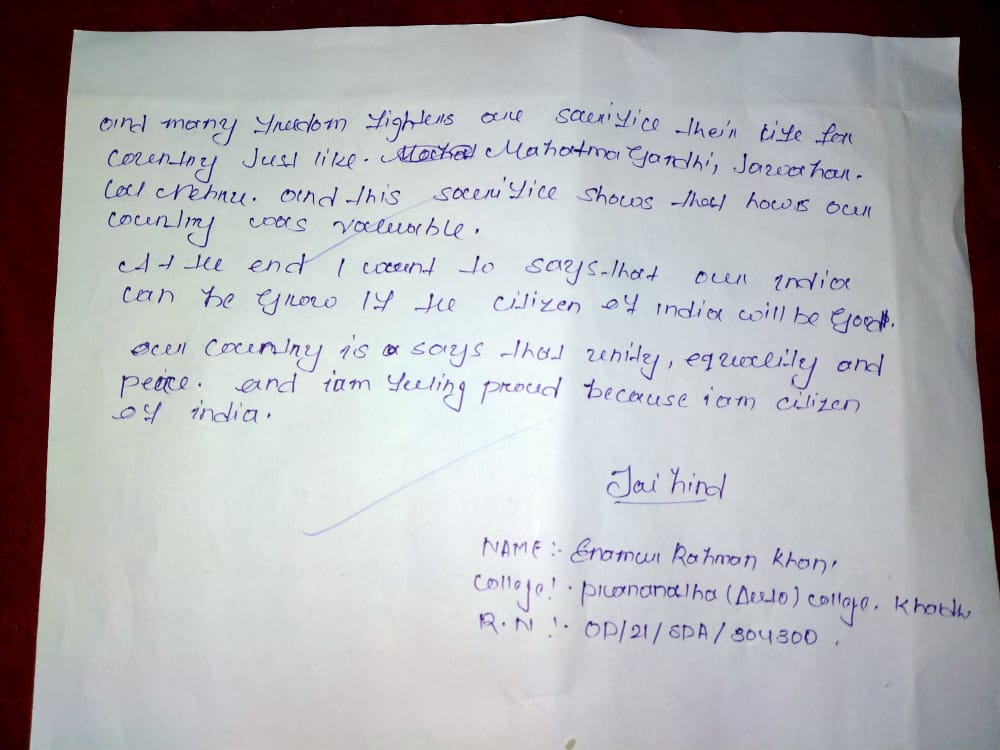 and many freedom fighters are sacrifice their life for
country Just like. Mahatma Gandhi, Jawahar.
Lal Nehru. and this sacrifice shows that how is our
country was valuable.
At the end I want to says that our india
can be grow If the citizen of india will be good.
our country is a says that unity, equality and
peace. and iam feeling proud because iam citizen
of india.
Jai hind
NAME :- Enamur Rahman Khan.
College :- (Auto) college.
R.N :- OD/21/SDA/304300.